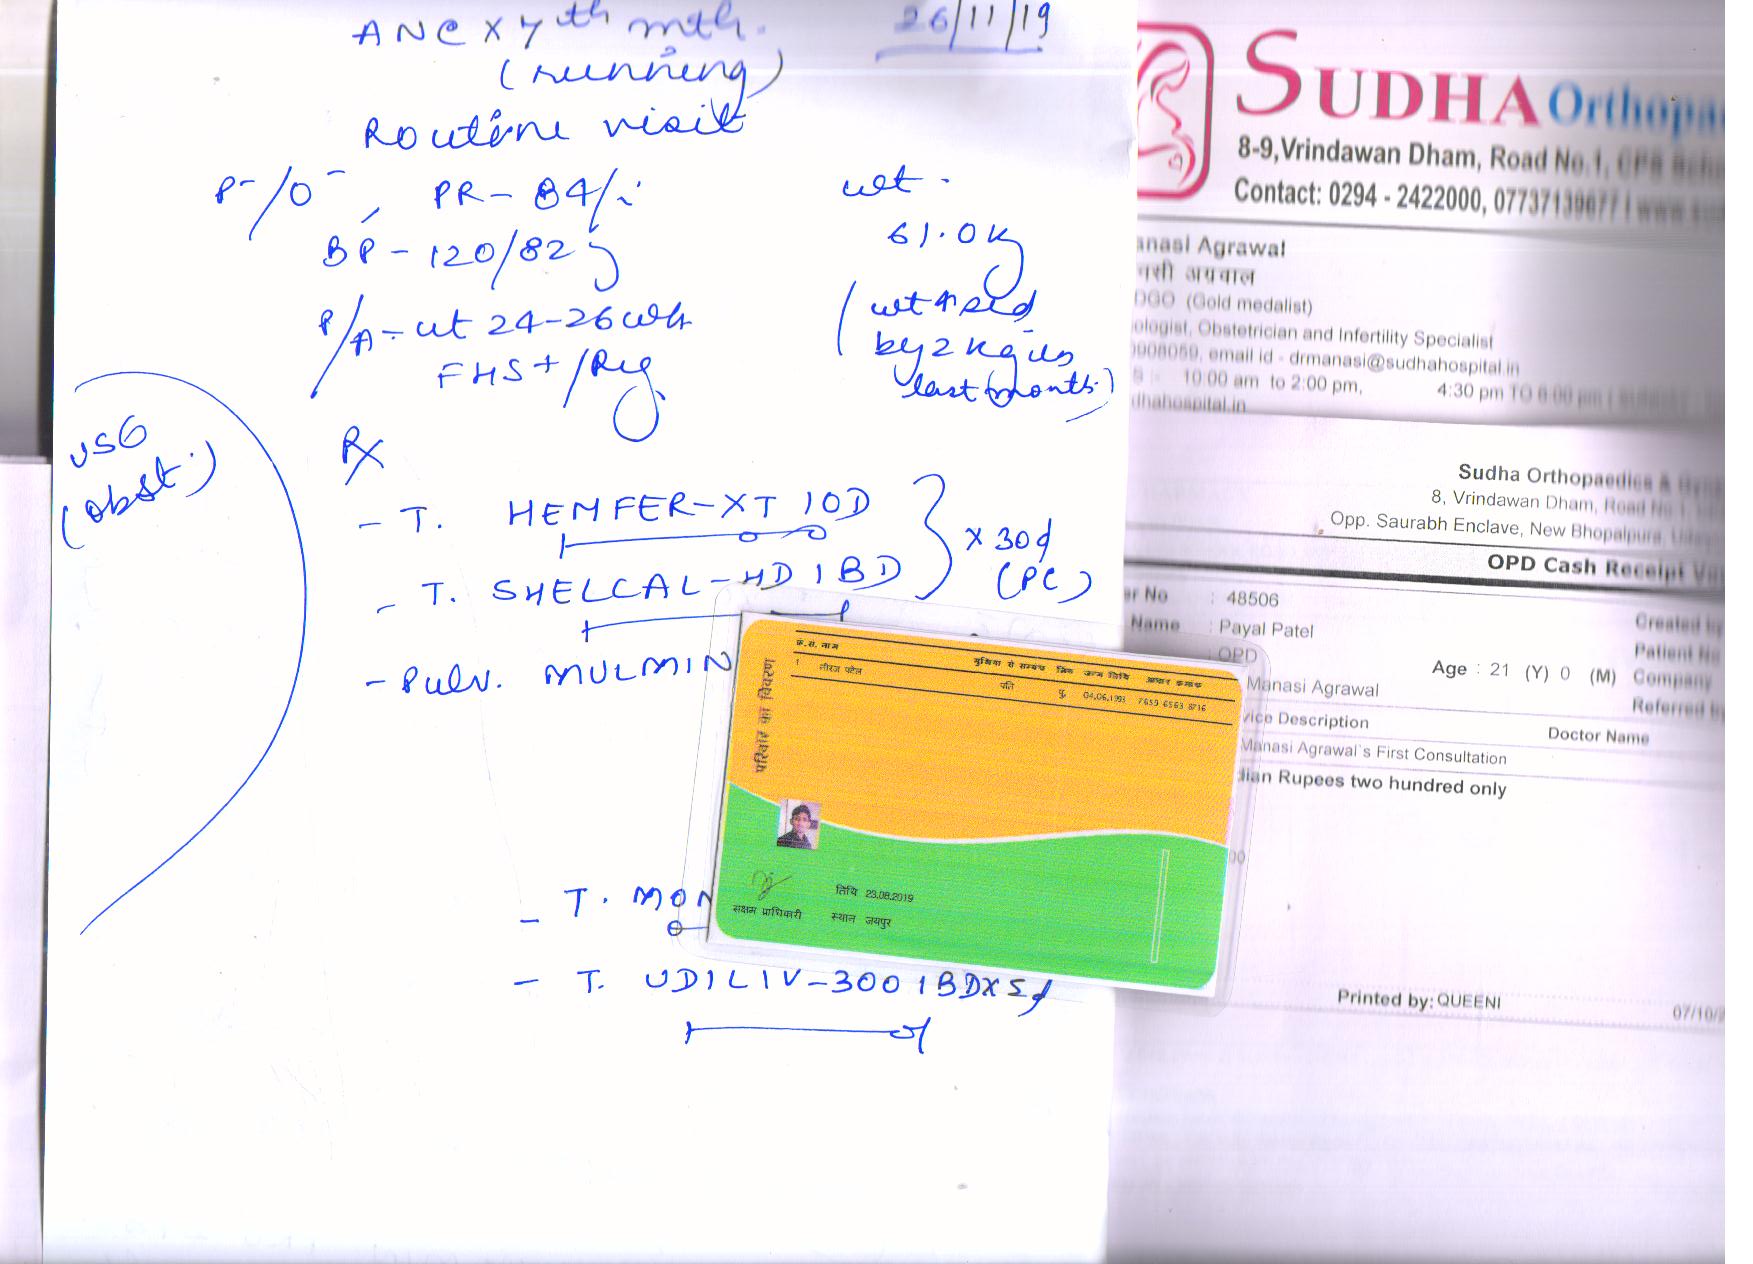 ANC x 7th mth.
(running)
26/11/19
Routine visit
P-/O-, PR- 84/i
wt.
61.0 kg
BP - 120/82
(wt ↑sed
by 2 kg in
last month.)
P/A - ut 24-26 wk
FHS + /Reg
USG
(obst.)
Rx
- T. HEMFER-XT 1OD
- T. SHELCAL-HD 1BD
} x 30d
(PC)
- Pulv. MULMIN
- T. MON
- T. UDILIV-300 1BDx5d
परिवार का विवरण
क्र.सं. नाम मुखिया से सम्बंध लिंग जन्म तिथि आधार क्रमांक
1 नीरज पटेल पति पु. 04.06.1993 7659 6563 8716
तिथि 23.08.2019
सक्षम प्राधिकारी स्थान जयपुर
SUDHA Orthopae
8-9, Vrindawan Dham, Road No.1, CPS
Contact: 0294 - 2422000, 07737139677
anasi Agrawal
अग्रवाल
DGO (Gold medalist)
ologist, Obstetrician and Infertility Specialist
0908059, email id - drmanasi@sudhahospital.in
10:00 am to 2:00 pm, 4:30 pm TO 6:00 pm
dhahospital.in
Sudha Orthopaedics &
8, Vrindawan Dham, Road No 1,
Opp. Saurabh Enclave, New Bhopalpura,
OPD Cash Receipt
er No : 48506
Created by
Name : Payal Patel
Patient No
: OPD
Age : 21 (Y) 0 (M)
Company
Manasi Agrawal
Referred by
vice Description
Doctor Name
Manasi Agrawal`s First Consultation
dian Rupees two hundred only
00
Printed by: QUEENI
07/10/2